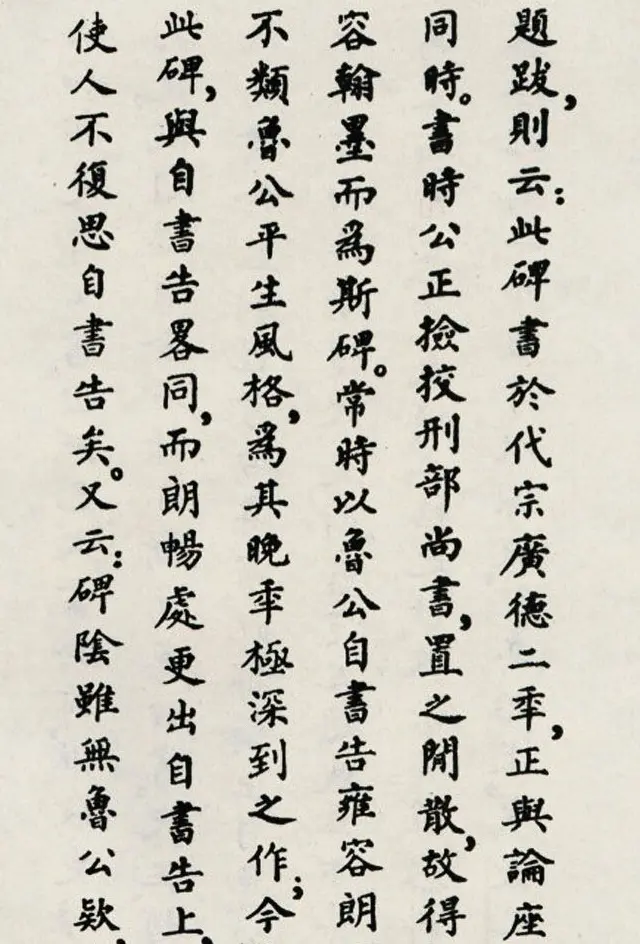 題跋，則云：此碑書於代宗廣德二秊，正與論座
同時。書時公正撿挍刑部尚書，置之閒散，故得
容翰墨而為斯碑。常時以魯公自書告雍容朗
不類魯公平生風格，為其晚秊極深到之作；今
此碑，與自書告畧同，而朗暢處更出自書告上，
使人不復思自書告矣。又云：碑陰雖無魯公欵，